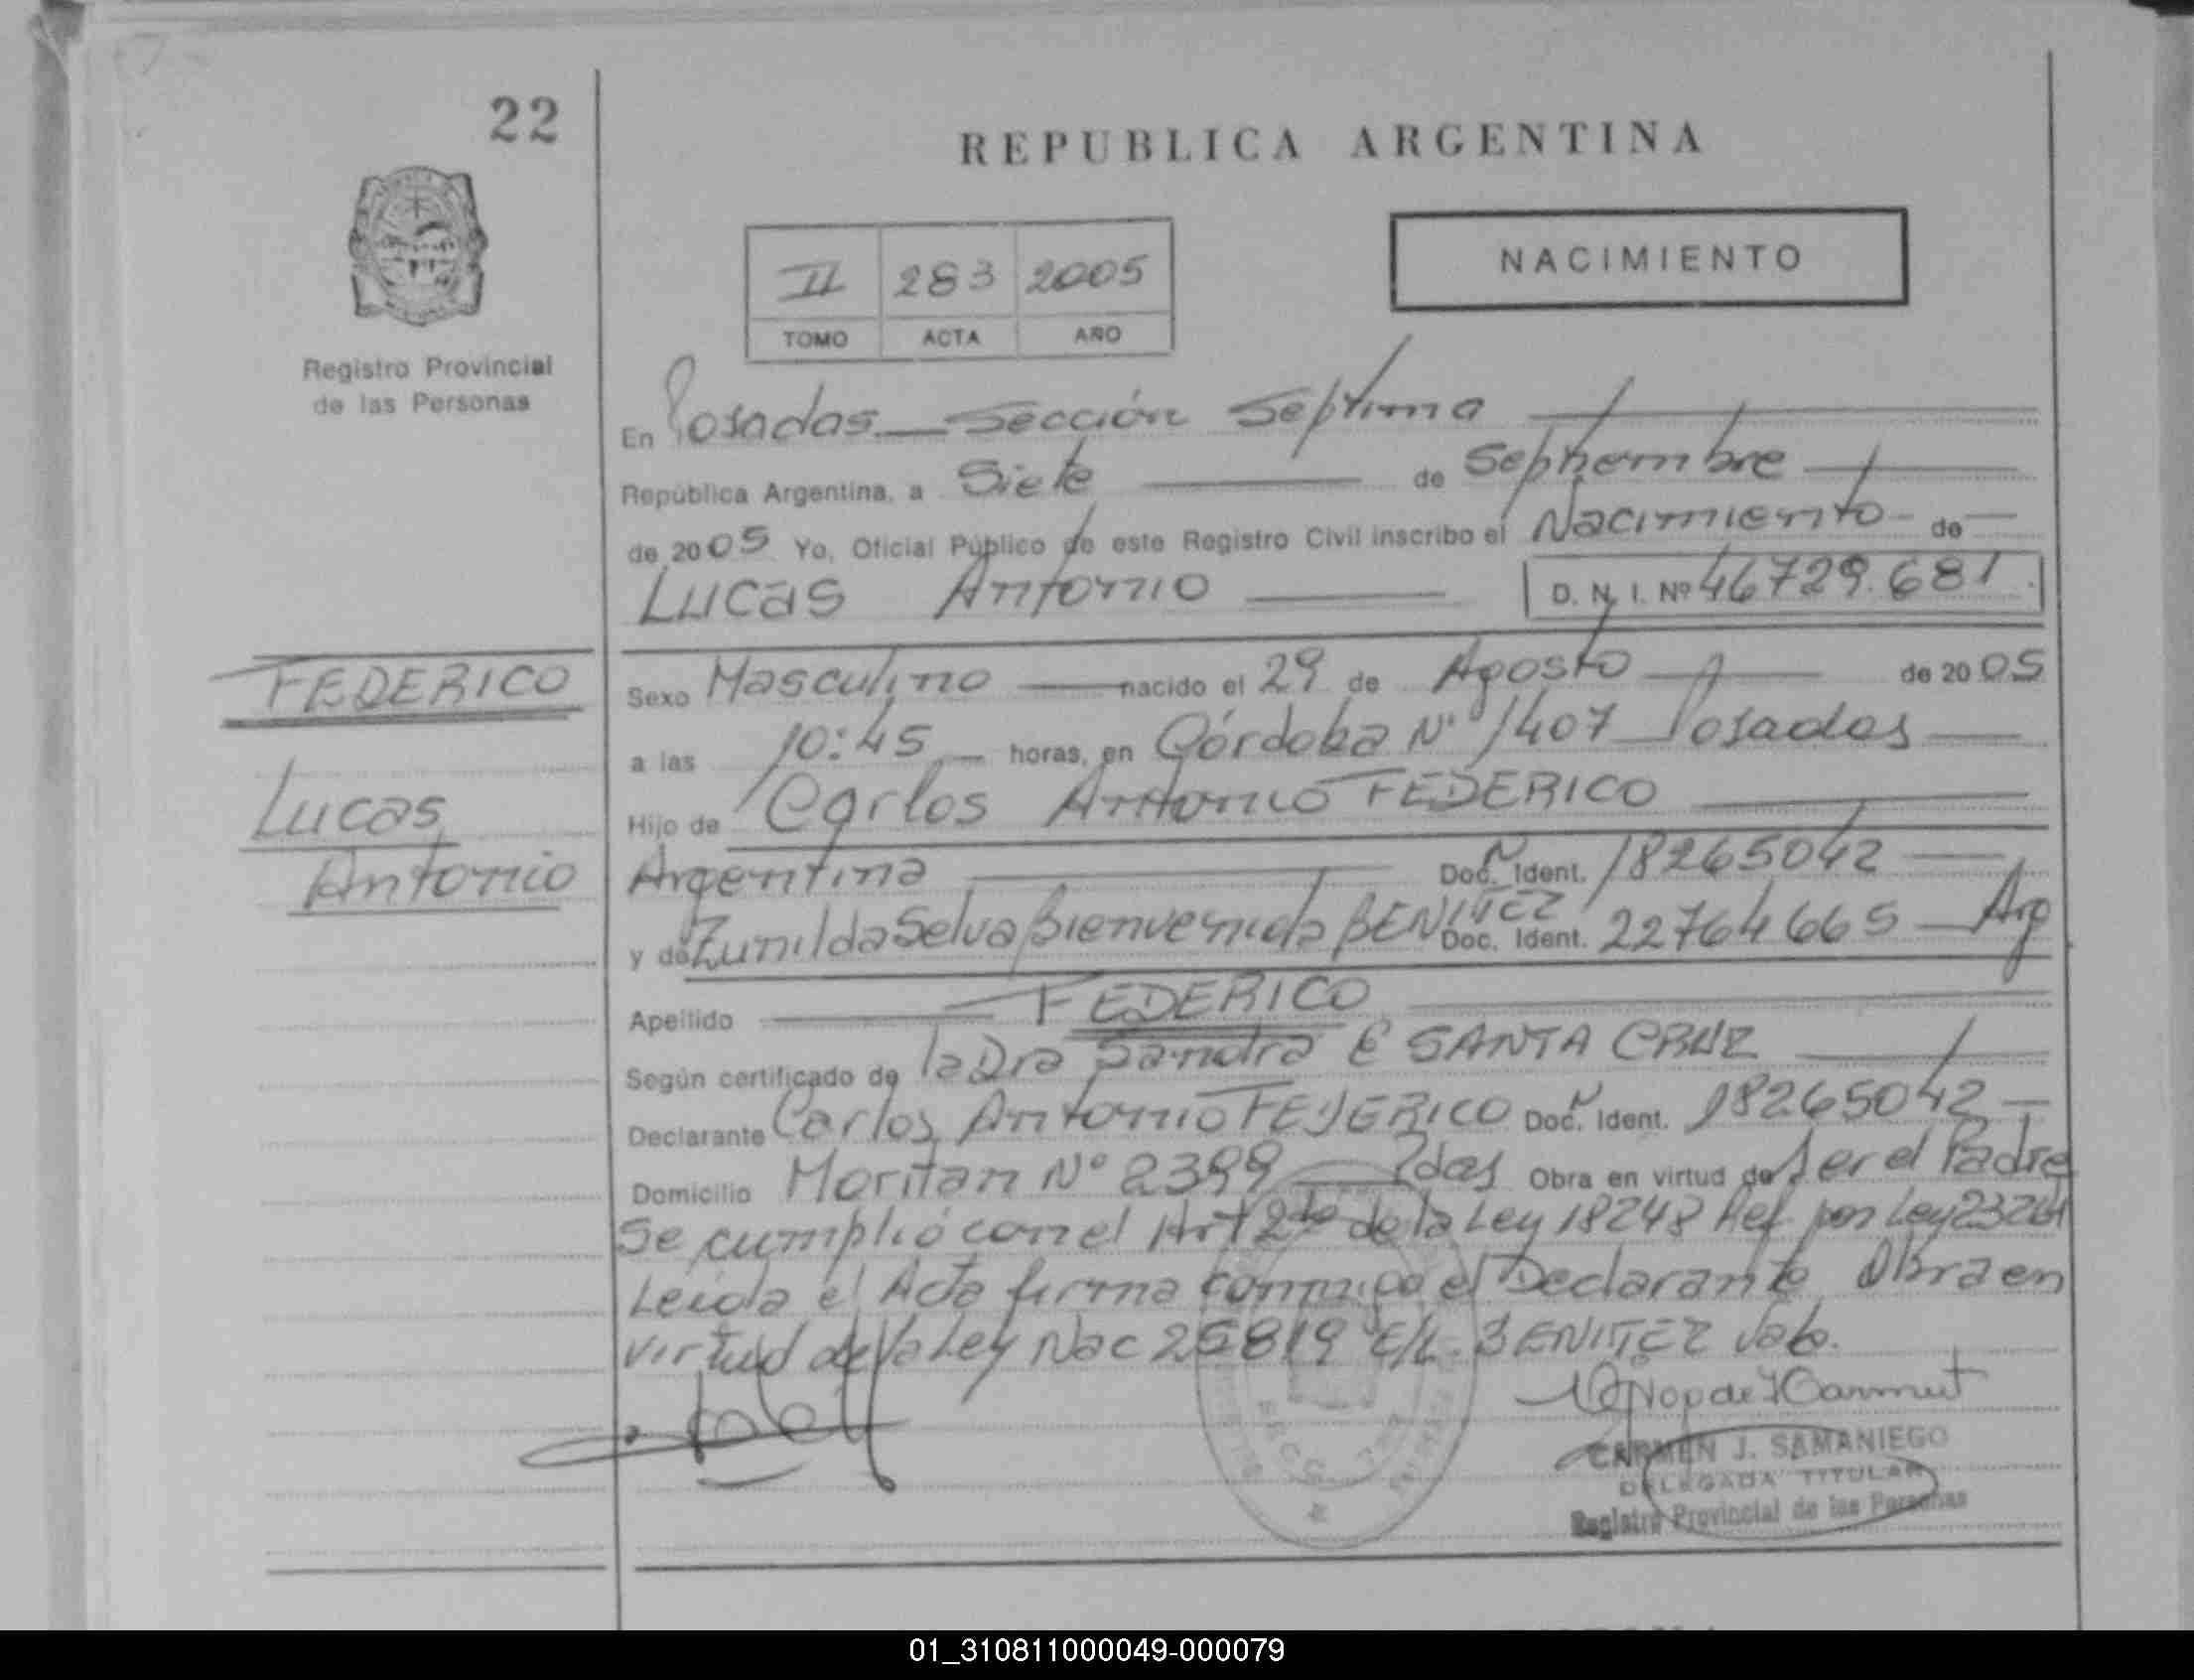 22
REPUBLICA ARGENTINA
NACIMIENTO
II 283 2005
TOMO ACTA AÑO
Registro Provincial
de las Personas
En Posadas Sección Septima
República Argentina, a Siete de Septiembre
de 2005 Yo, Oficial Público de este Registro Civil inscribo el Nacimiento de
Lucas Antonio D. N. I. Nº 46729.681
FEDERICO
Lucas
Antonio
Sexo Masculino nacido el 29 de Agosto de 2005
a las 10:45 horas, en Córdoba Nº 1407 Posadas
Hijo de Carlos Antonio FEDERICO
Argentina Doc. Ident. 18265042
y de Zunilda Selva Bienvenida BENITEZ Doc. Ident. 22764665 Arg
Apellido FEDERICO
Según certificado de la Dra Sandra E SANTA CRUZ
Declarante Carlos Antonio FEDERICO Doc. Ident. 18265042
Domicilio Moritan Nº 2399 Pdas Obra en virtud de ser el Padre
Se cumplió con el Art 2do de la Ley 18248 Ref. por Ley 23264
Leida el Acta firma conmigo el Declarante Obra en
virtud de la Ley Nac 25819 E/L. BENITEZ Vale.
CARMEN J. SAMANIEGO
DELEGADA TITULAR
Registro Provincial de las Personas
01_310811000049-000079